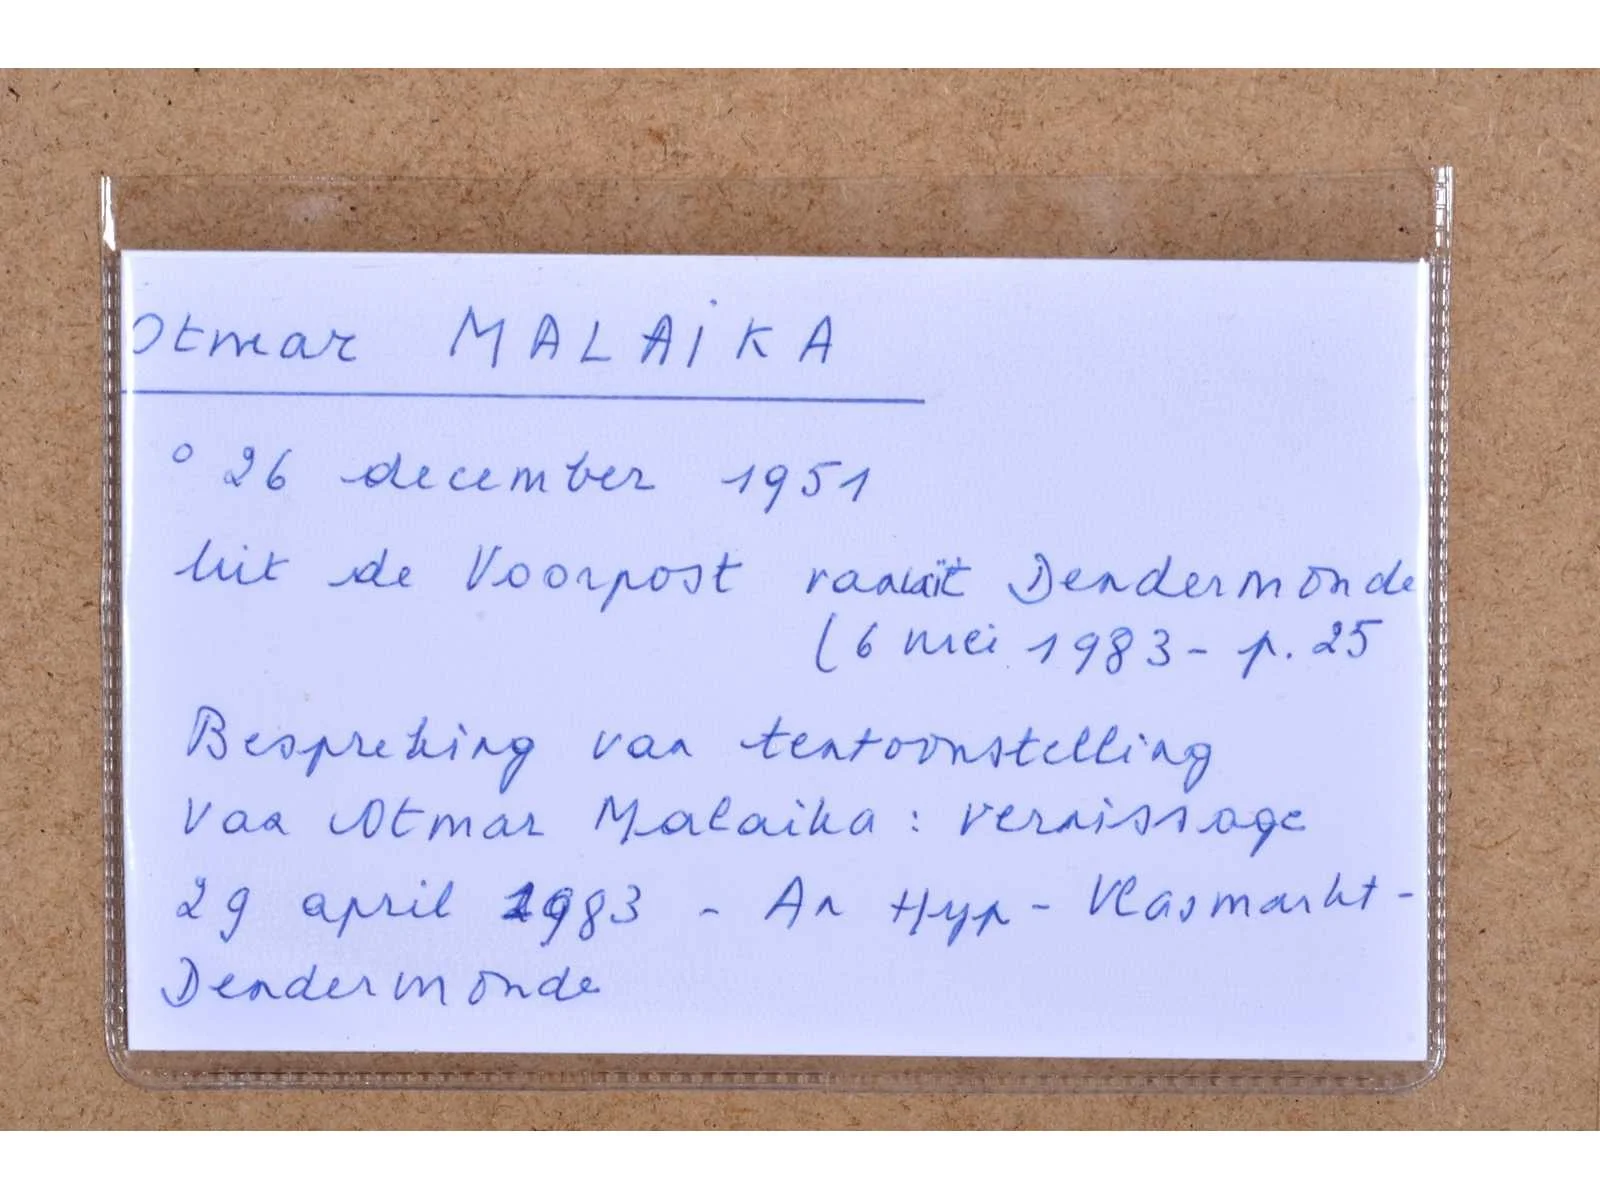 Otmar MALAIKA
° 26 december 1951
Uit de Voorpost vanuit Dendermonde
(6 mei 1983 - p. 25
Bespreking van tentoonstelling
Van Otmar Malaika : vernissage
29 april 1983 - An Hyp - Vlasmarkt -
Dendermonde